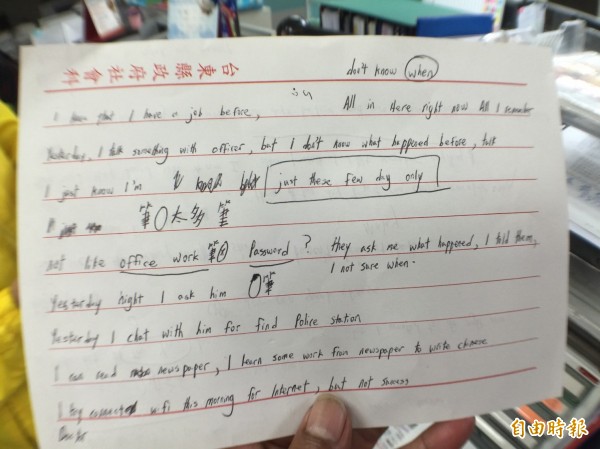 台東縣政府社會科
don't know when
I know that I have a job before, All in Here right now All I remember
Yesterday, I talk something with officer, but I don't know what happened before, talk
I just know I'm just these few day only
筆 太多 筆
not like office work 筆 Password? they ask me what happened, I told them,
I not sure when.
Yesterday night I ask him 筆
Yesterday I chat with him for find Police station
I can read newspaper, I learn some work from newspaper to write chinese
I try connected wifi this morning for Internet, but not success
自由時報